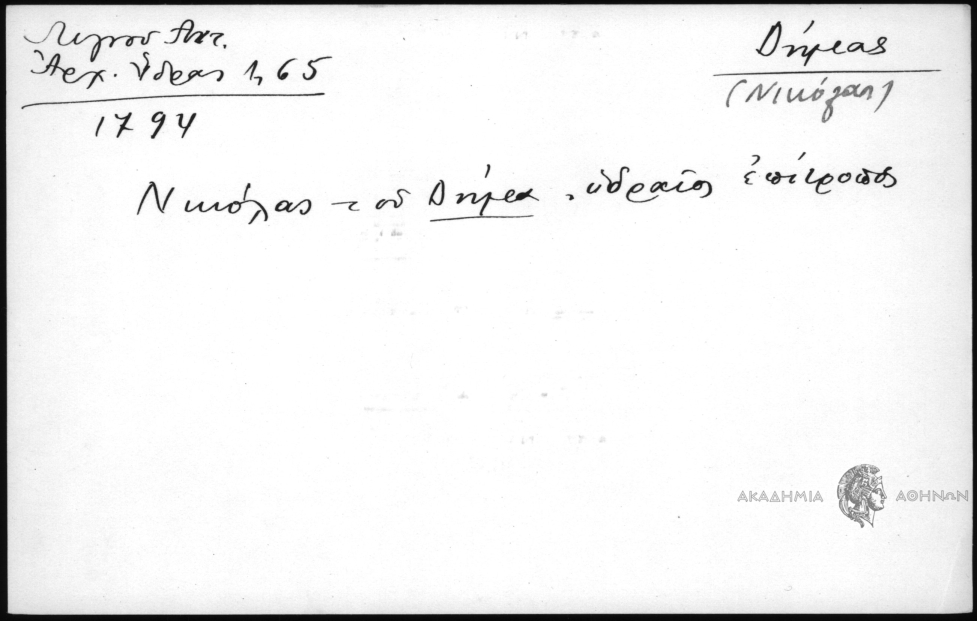 Λιγνού Αντ.
Ἀρχ. Ὕδρας 1, 65
1794
Δήμας
(Νικόλας)
Νικόλας τοῦ Δήμα, ὑδραῖος ἐπίτροπος
ΑΚΑΔΗΜΙΑ ΑΘΗΝΩΝ